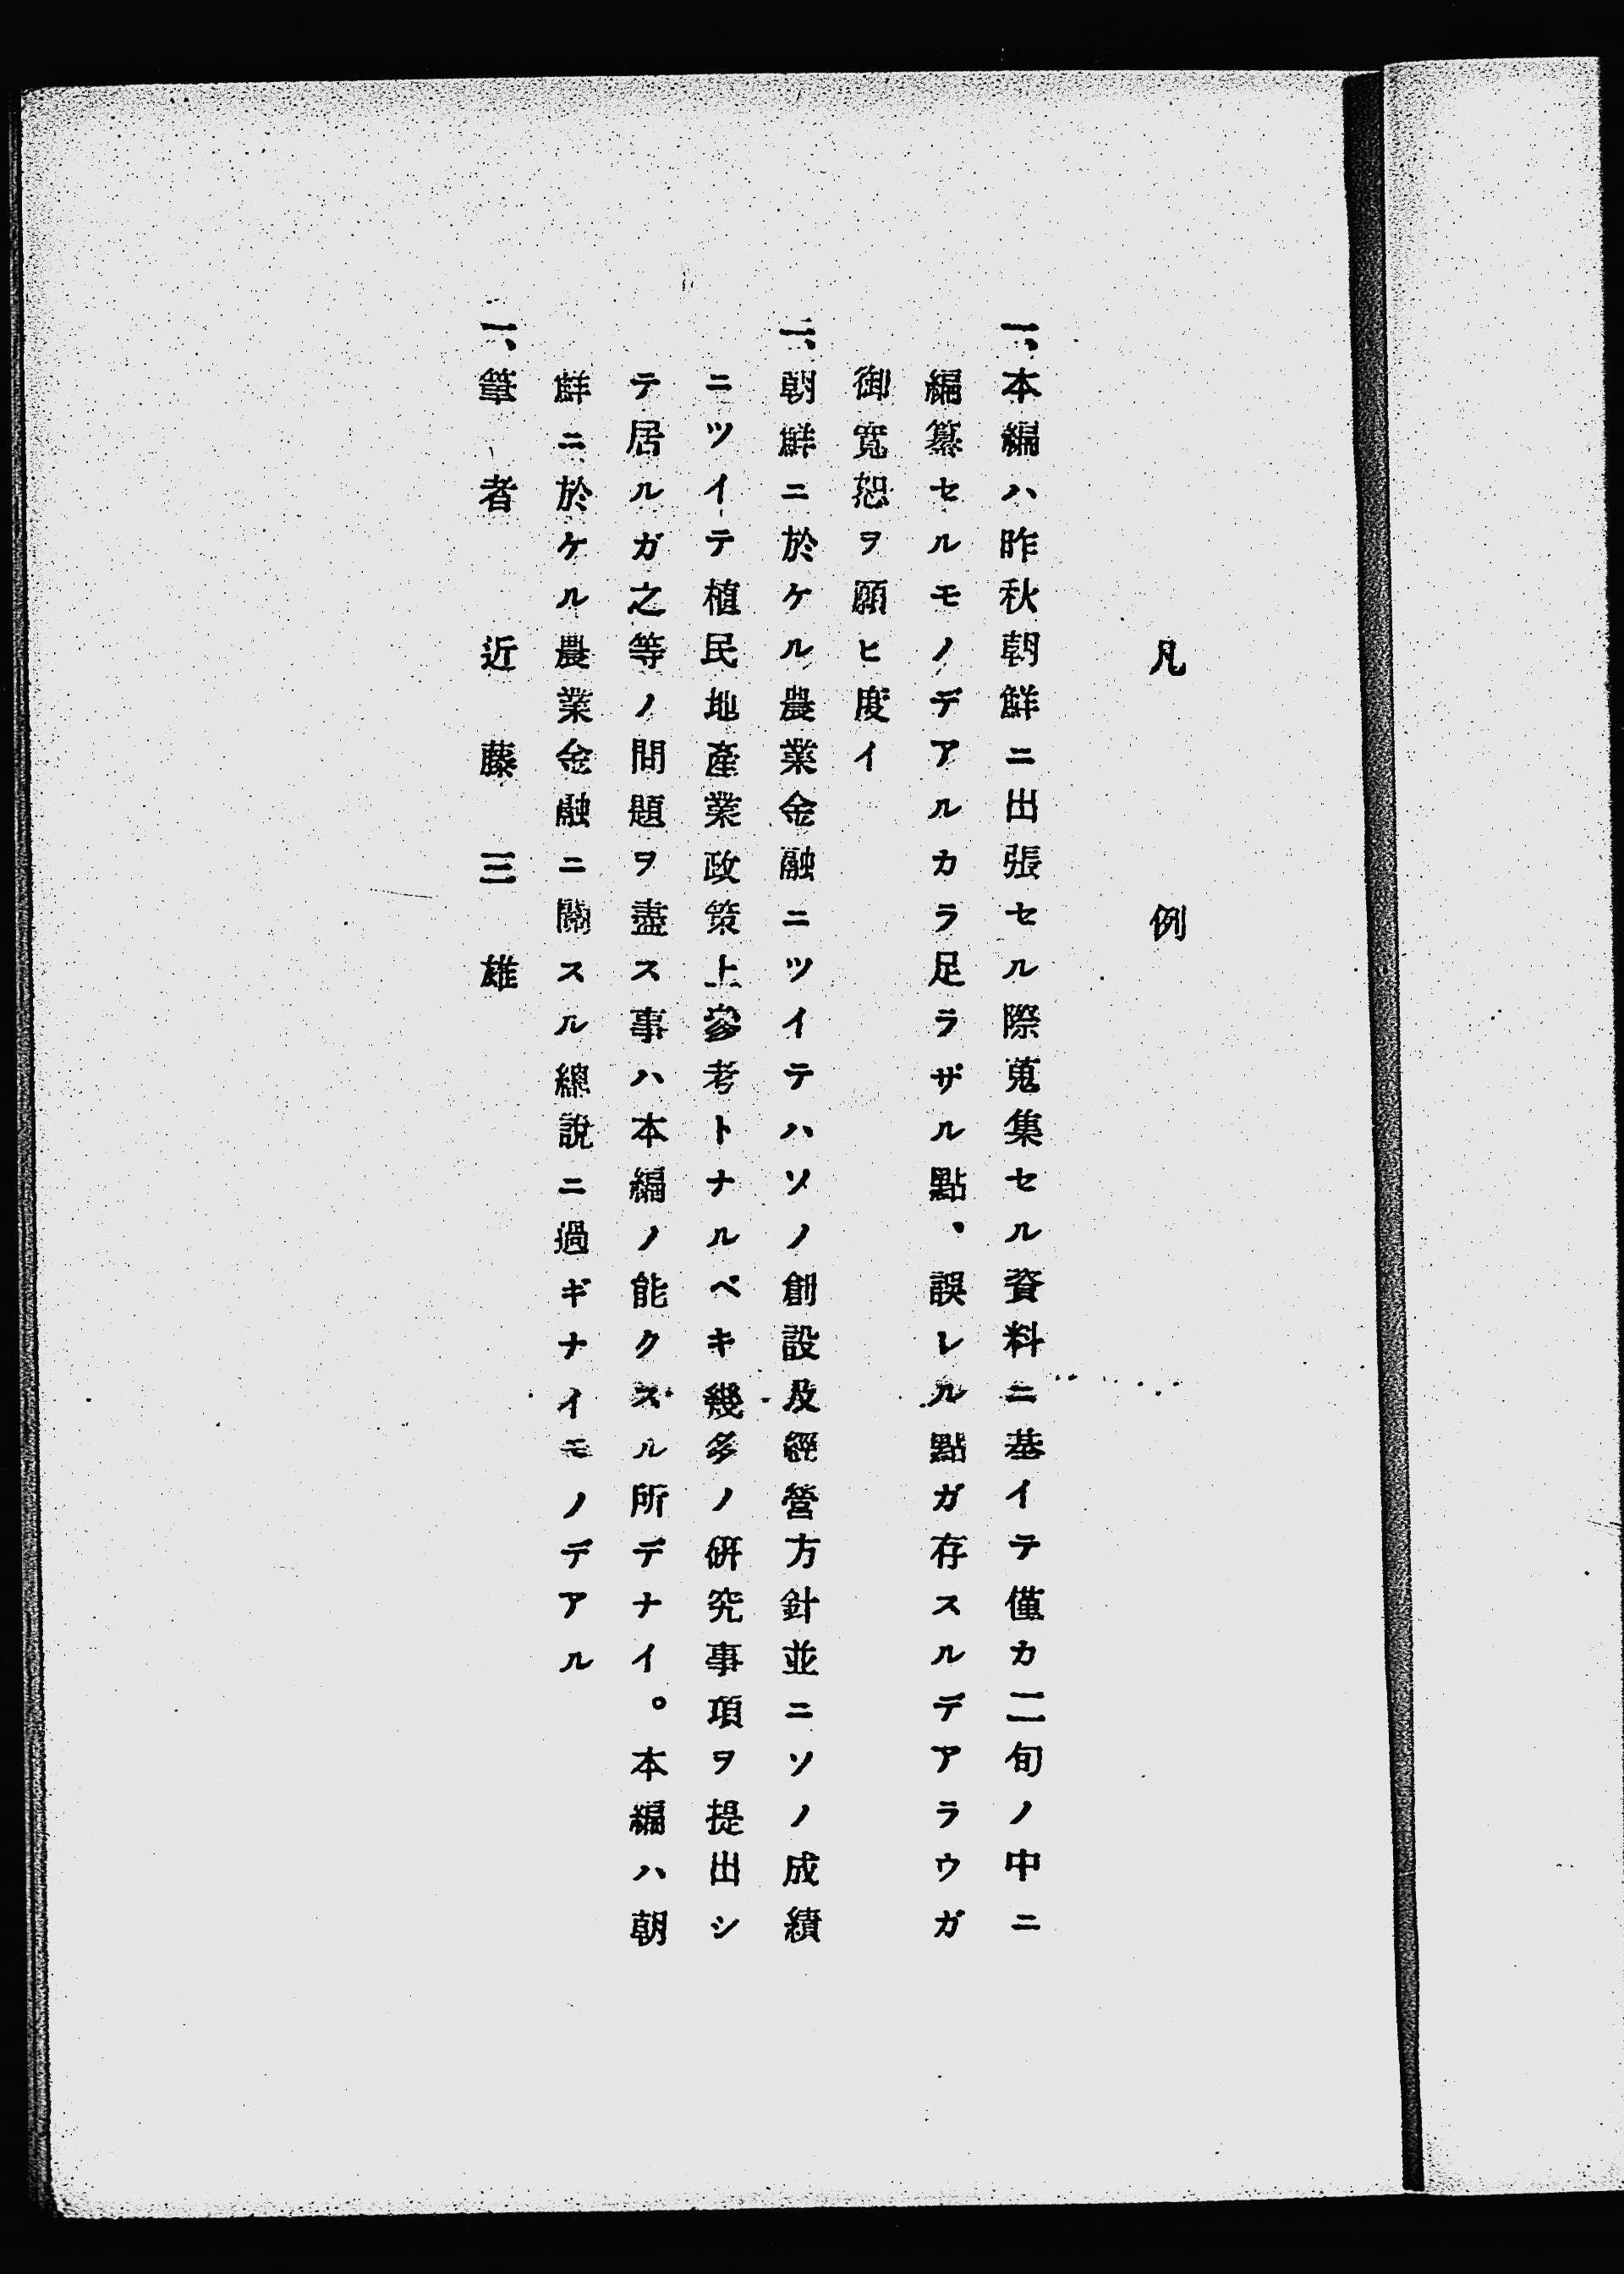 凡例
一、本編ハ昨秋朝鮮ニ出張セル際蒐集セル資料ニ基イテ僅カ二旬ノ中ニ
編纂セルモノデアルカラ足ラザル點、誤レル點ガ存スルデアラウガ
御寬恕ヲ願ヒ度イ
一、朝鮮ニ於ケル農業金融ニツイテハソノ創設及經營方針並ニソノ成績
ニツイテ植民地產業政策上參考トナルベキ幾多ノ硏究事項ヲ提出シ
テ居ルガ之等ノ問題ヲ盡ス事ハ本編ノ能クスル所デナイ。本編ハ朝
鮮ニ於ケル農業金融ニ關スル總說ニ過ギナイモノデアル
一、筆者 近藤三雄